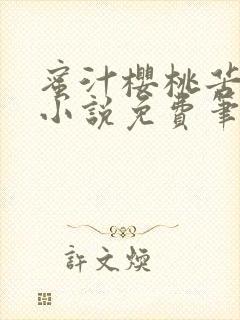 蜜汁櫻桃苦
小說免費筆
許文煥